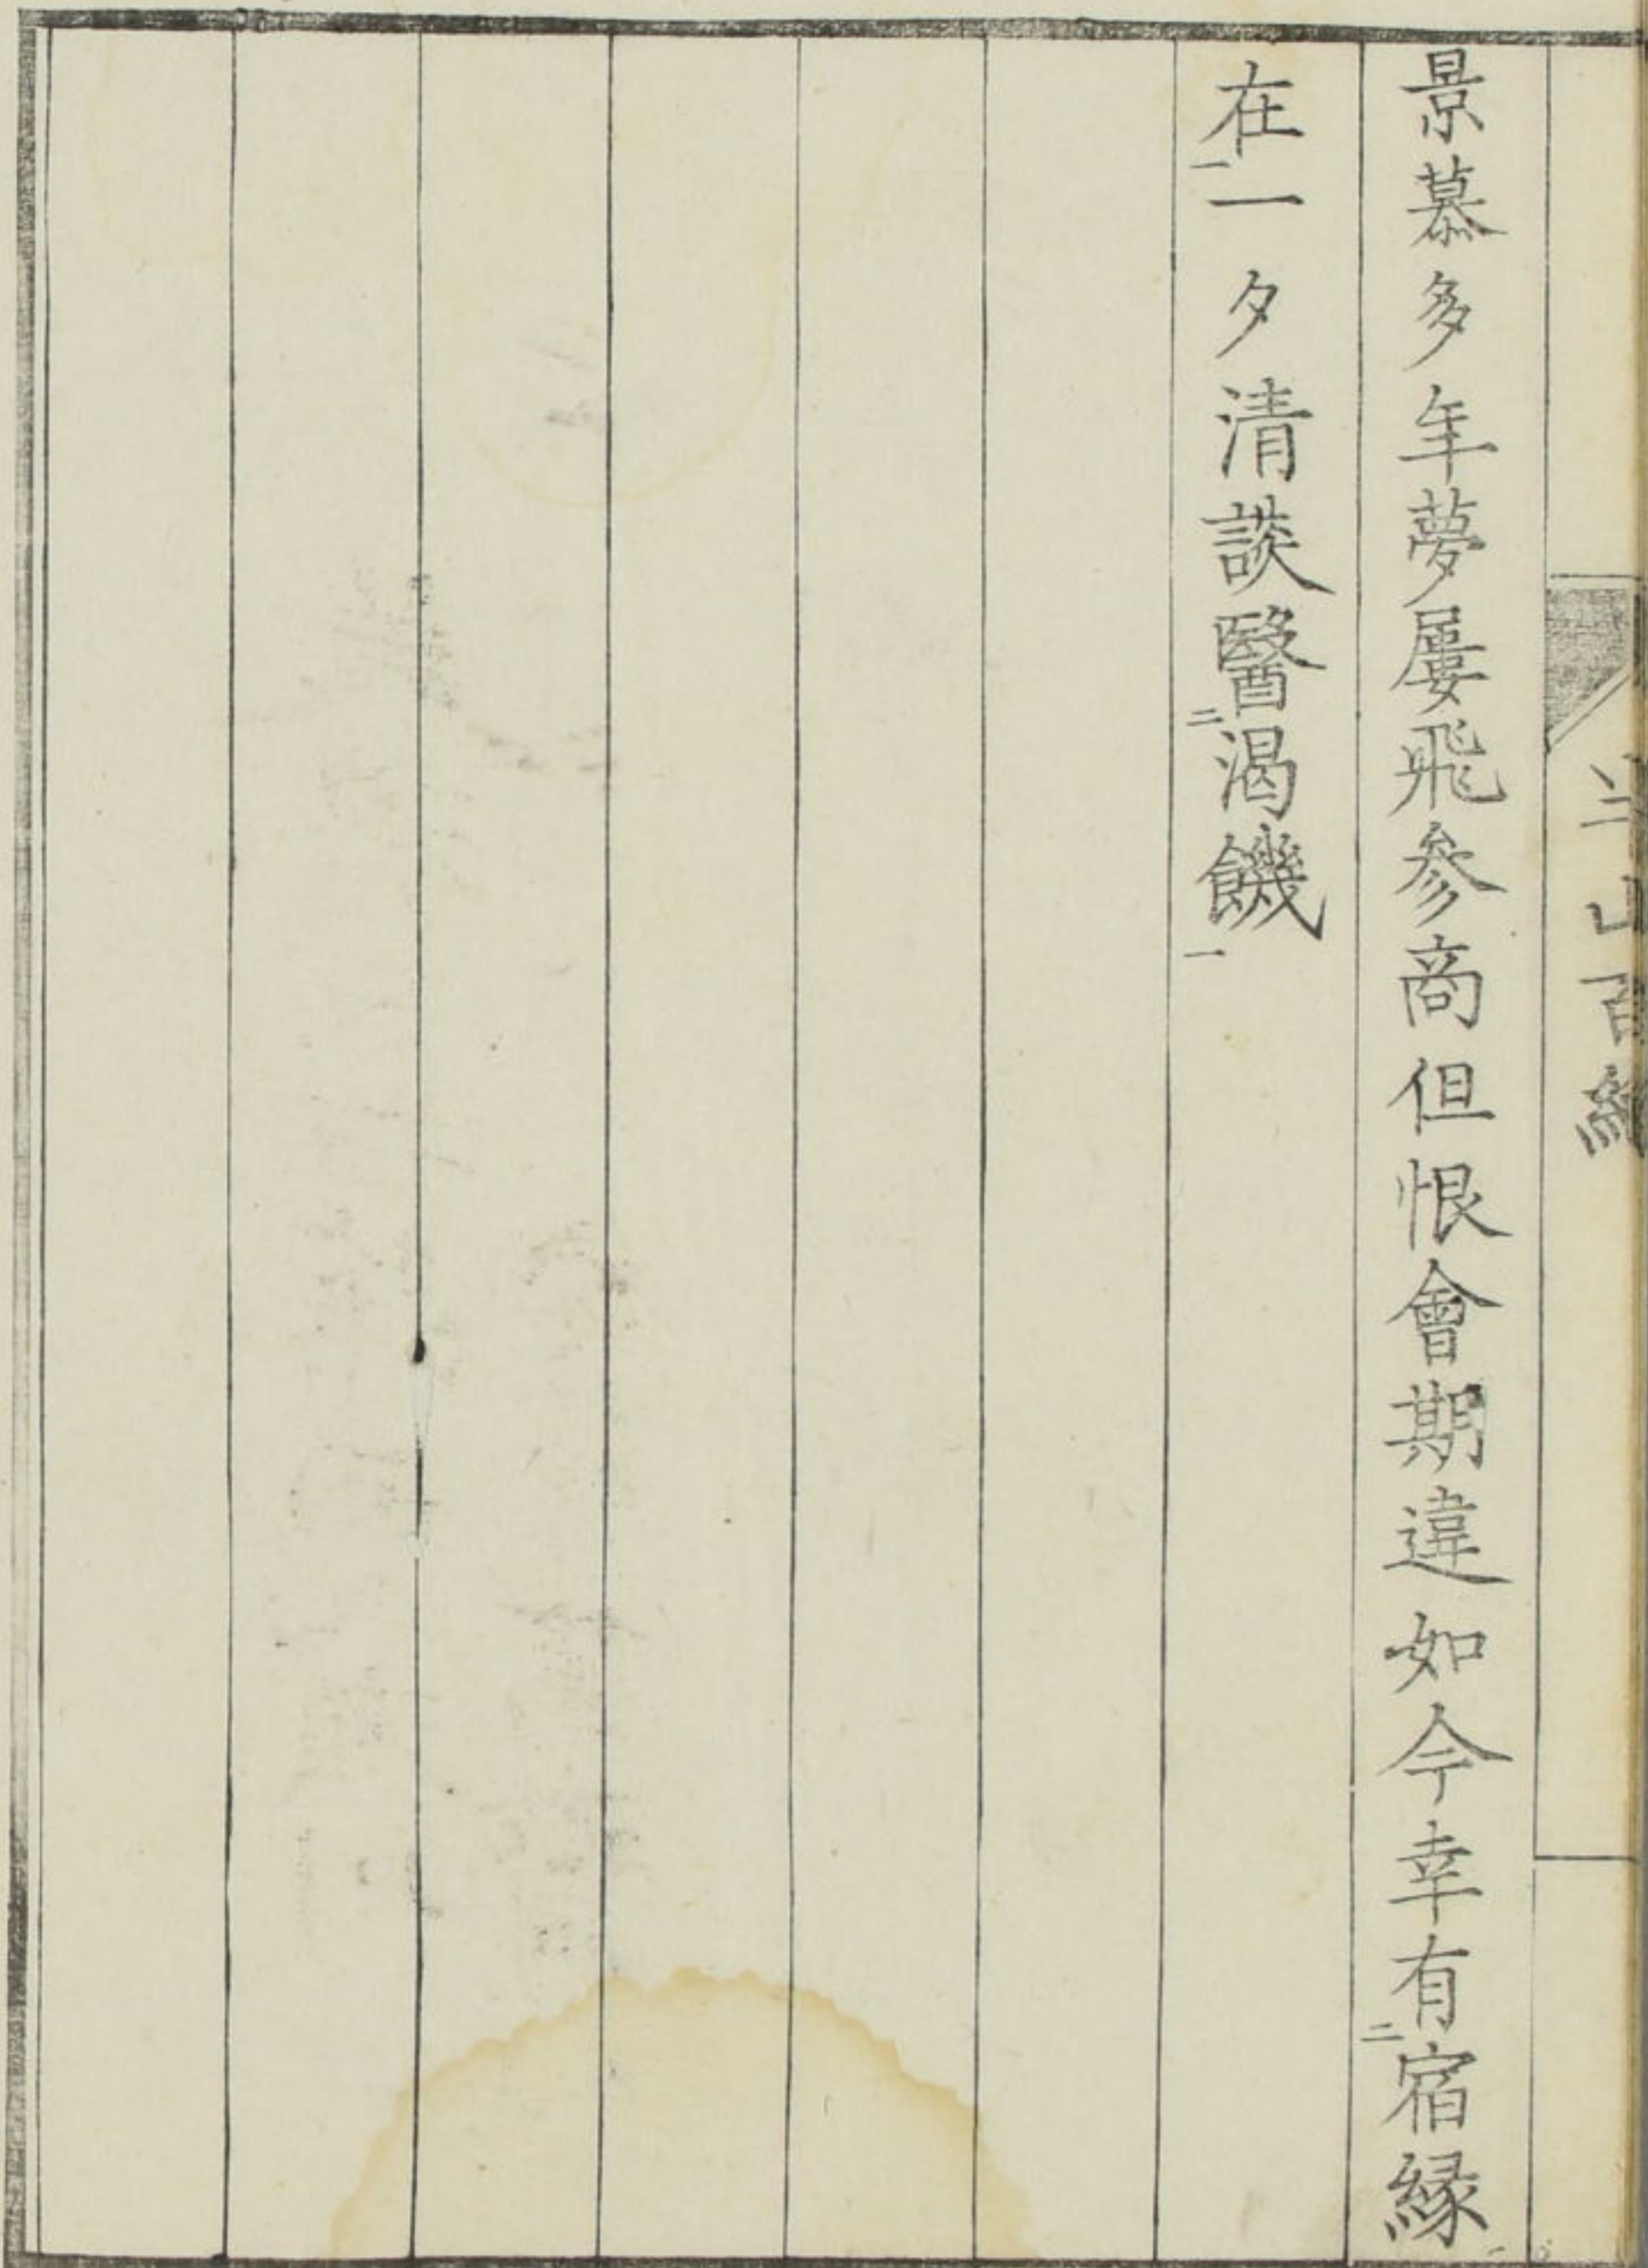 景慕多年夢屢飛参商但恨會期違如今幸有二宿縁
在一一夕清談醫二渴饑一
山百絶